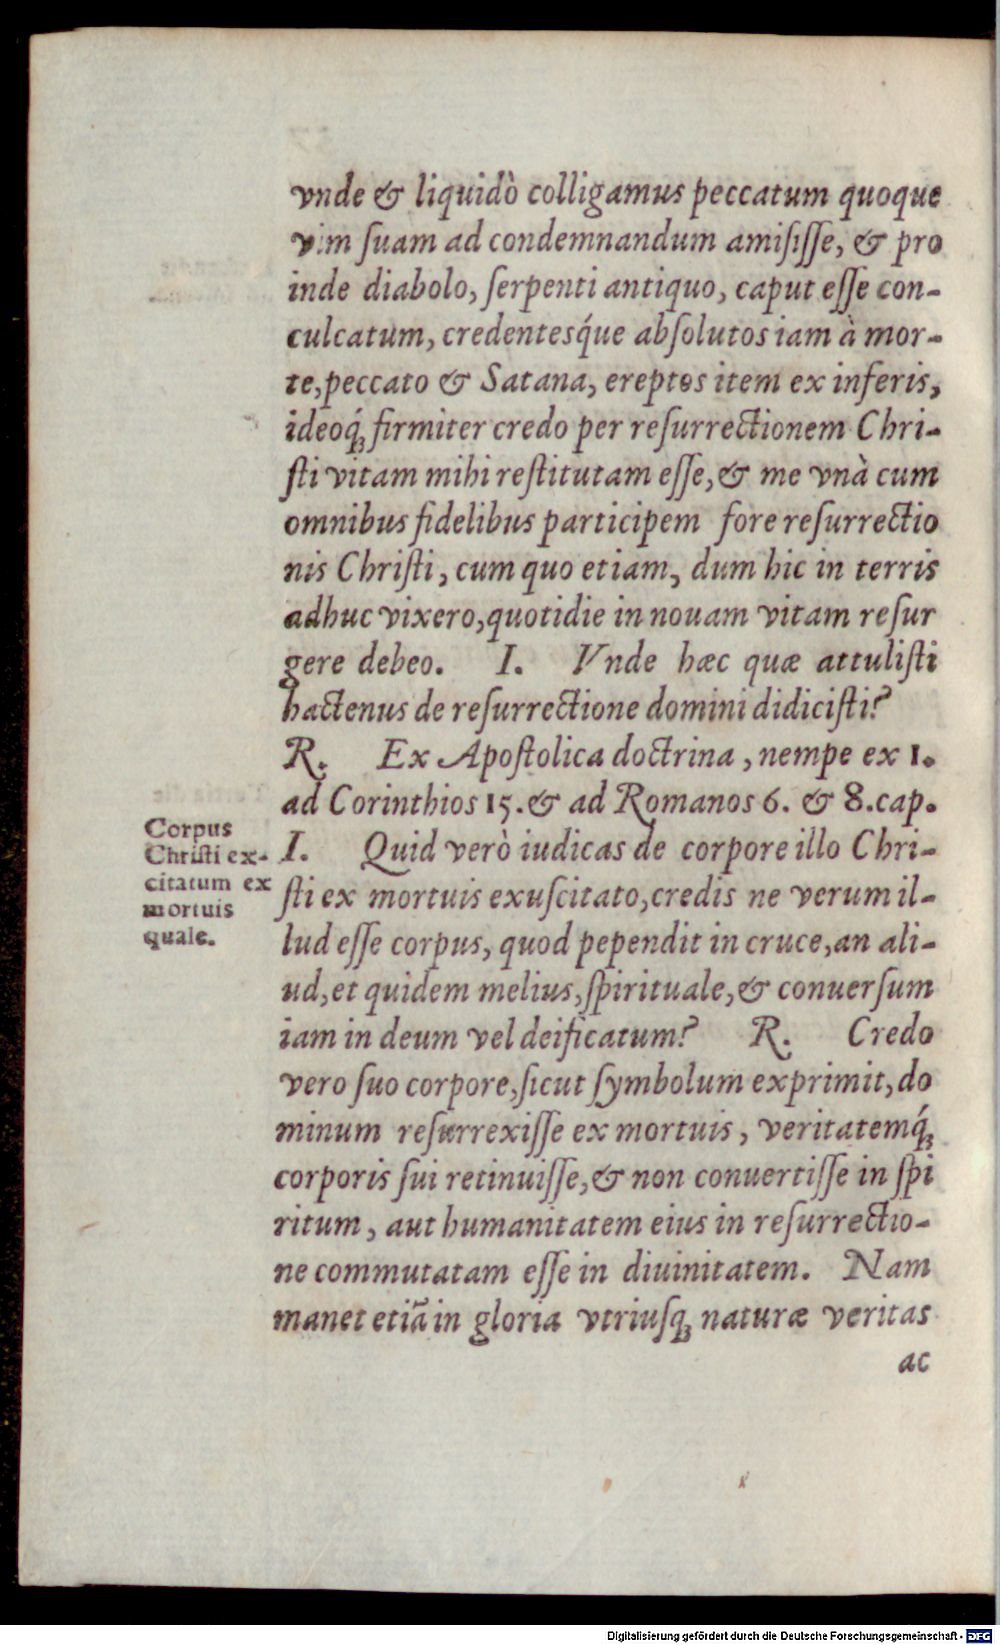 vnde & liquidò colligamus peccatum quoque
vim ſuam ad condemnandum amiſiſſe, & pro
inde diabolo, ſerpenti antiquo, caput eſſe con-
culcatum, credentesq́ue abſolutos iam à mor-
te, peccato & Satana, ereptos item ex inferis,
ideoq́ꝫ firmiter credo per reſurrectionem Chri-
ſti vitam mihi reſtitutam eſſe, & me vnà cum
omnibus fidelibus participem fore reſurrectio
nis Chriſti, cum quo etiam, dum hic in terris
adhuc vixero, quotidie in nouam vitam reſur
gere debeo. I. Vnde hæc quæ attuliſti
hactenus de reſurrectione domini didiciſti?
R. Ex Apoſtolica doctrina, nempe ex 1.
ad Corinthios 15. & ad Romanos 6. & 8. cap.
Corpus
Chriſti ex-
citatum ex
mortuis
quale.
I. Quid verò iudicas de corpore illo Chri-
ſti ex mortuis exuſcitato, credis ne verum il-
lud eſſe corpus, quod pependit in cruce, an ali-
ud, et quidem melius, ſpirituale, & conuerſum
iam in deum vel deificatum? R. Credo
vero ſuo corpore, ſicut ſymbolum exprimit, do
minum reſurrexiſſe ex mortuis, veritatemq́ꝫ
corporis ſui retinuiſſe, & non conuertiſſe in ſpi
ritum, aut humanitatem eius in reſurrectio-
ne commutatam eſſe in diuinitatem. Nam
manet etiā in gloria vtriuſqꝫ naturæ veritas
ac
Digitalisierung gefördert durch die Deutsche Forschungsgemeinschaft - DFG